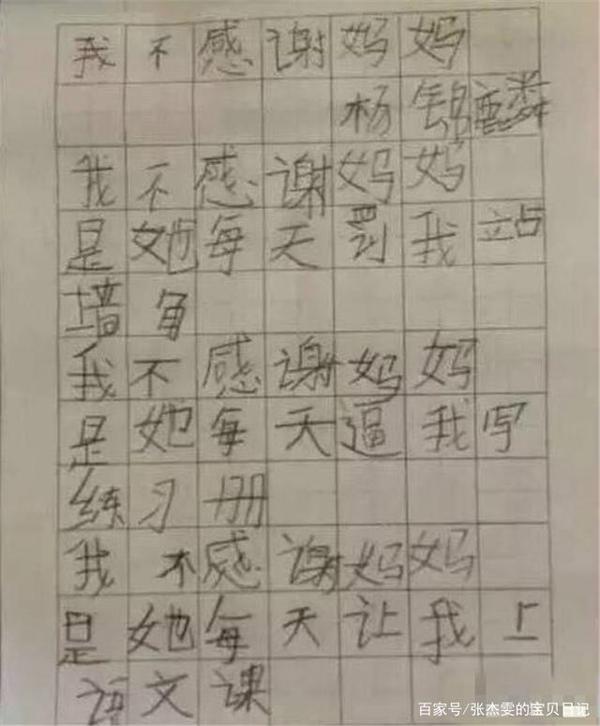 我不感谢妈妈
杨锦麟
我不感谢妈妈
是她每天罚我站
墙角
我不感谢妈妈
是她每天逼我写
练习册
我不感谢妈妈
是她每天让我上
语文课
百家号/张杰雯的宝贝日记